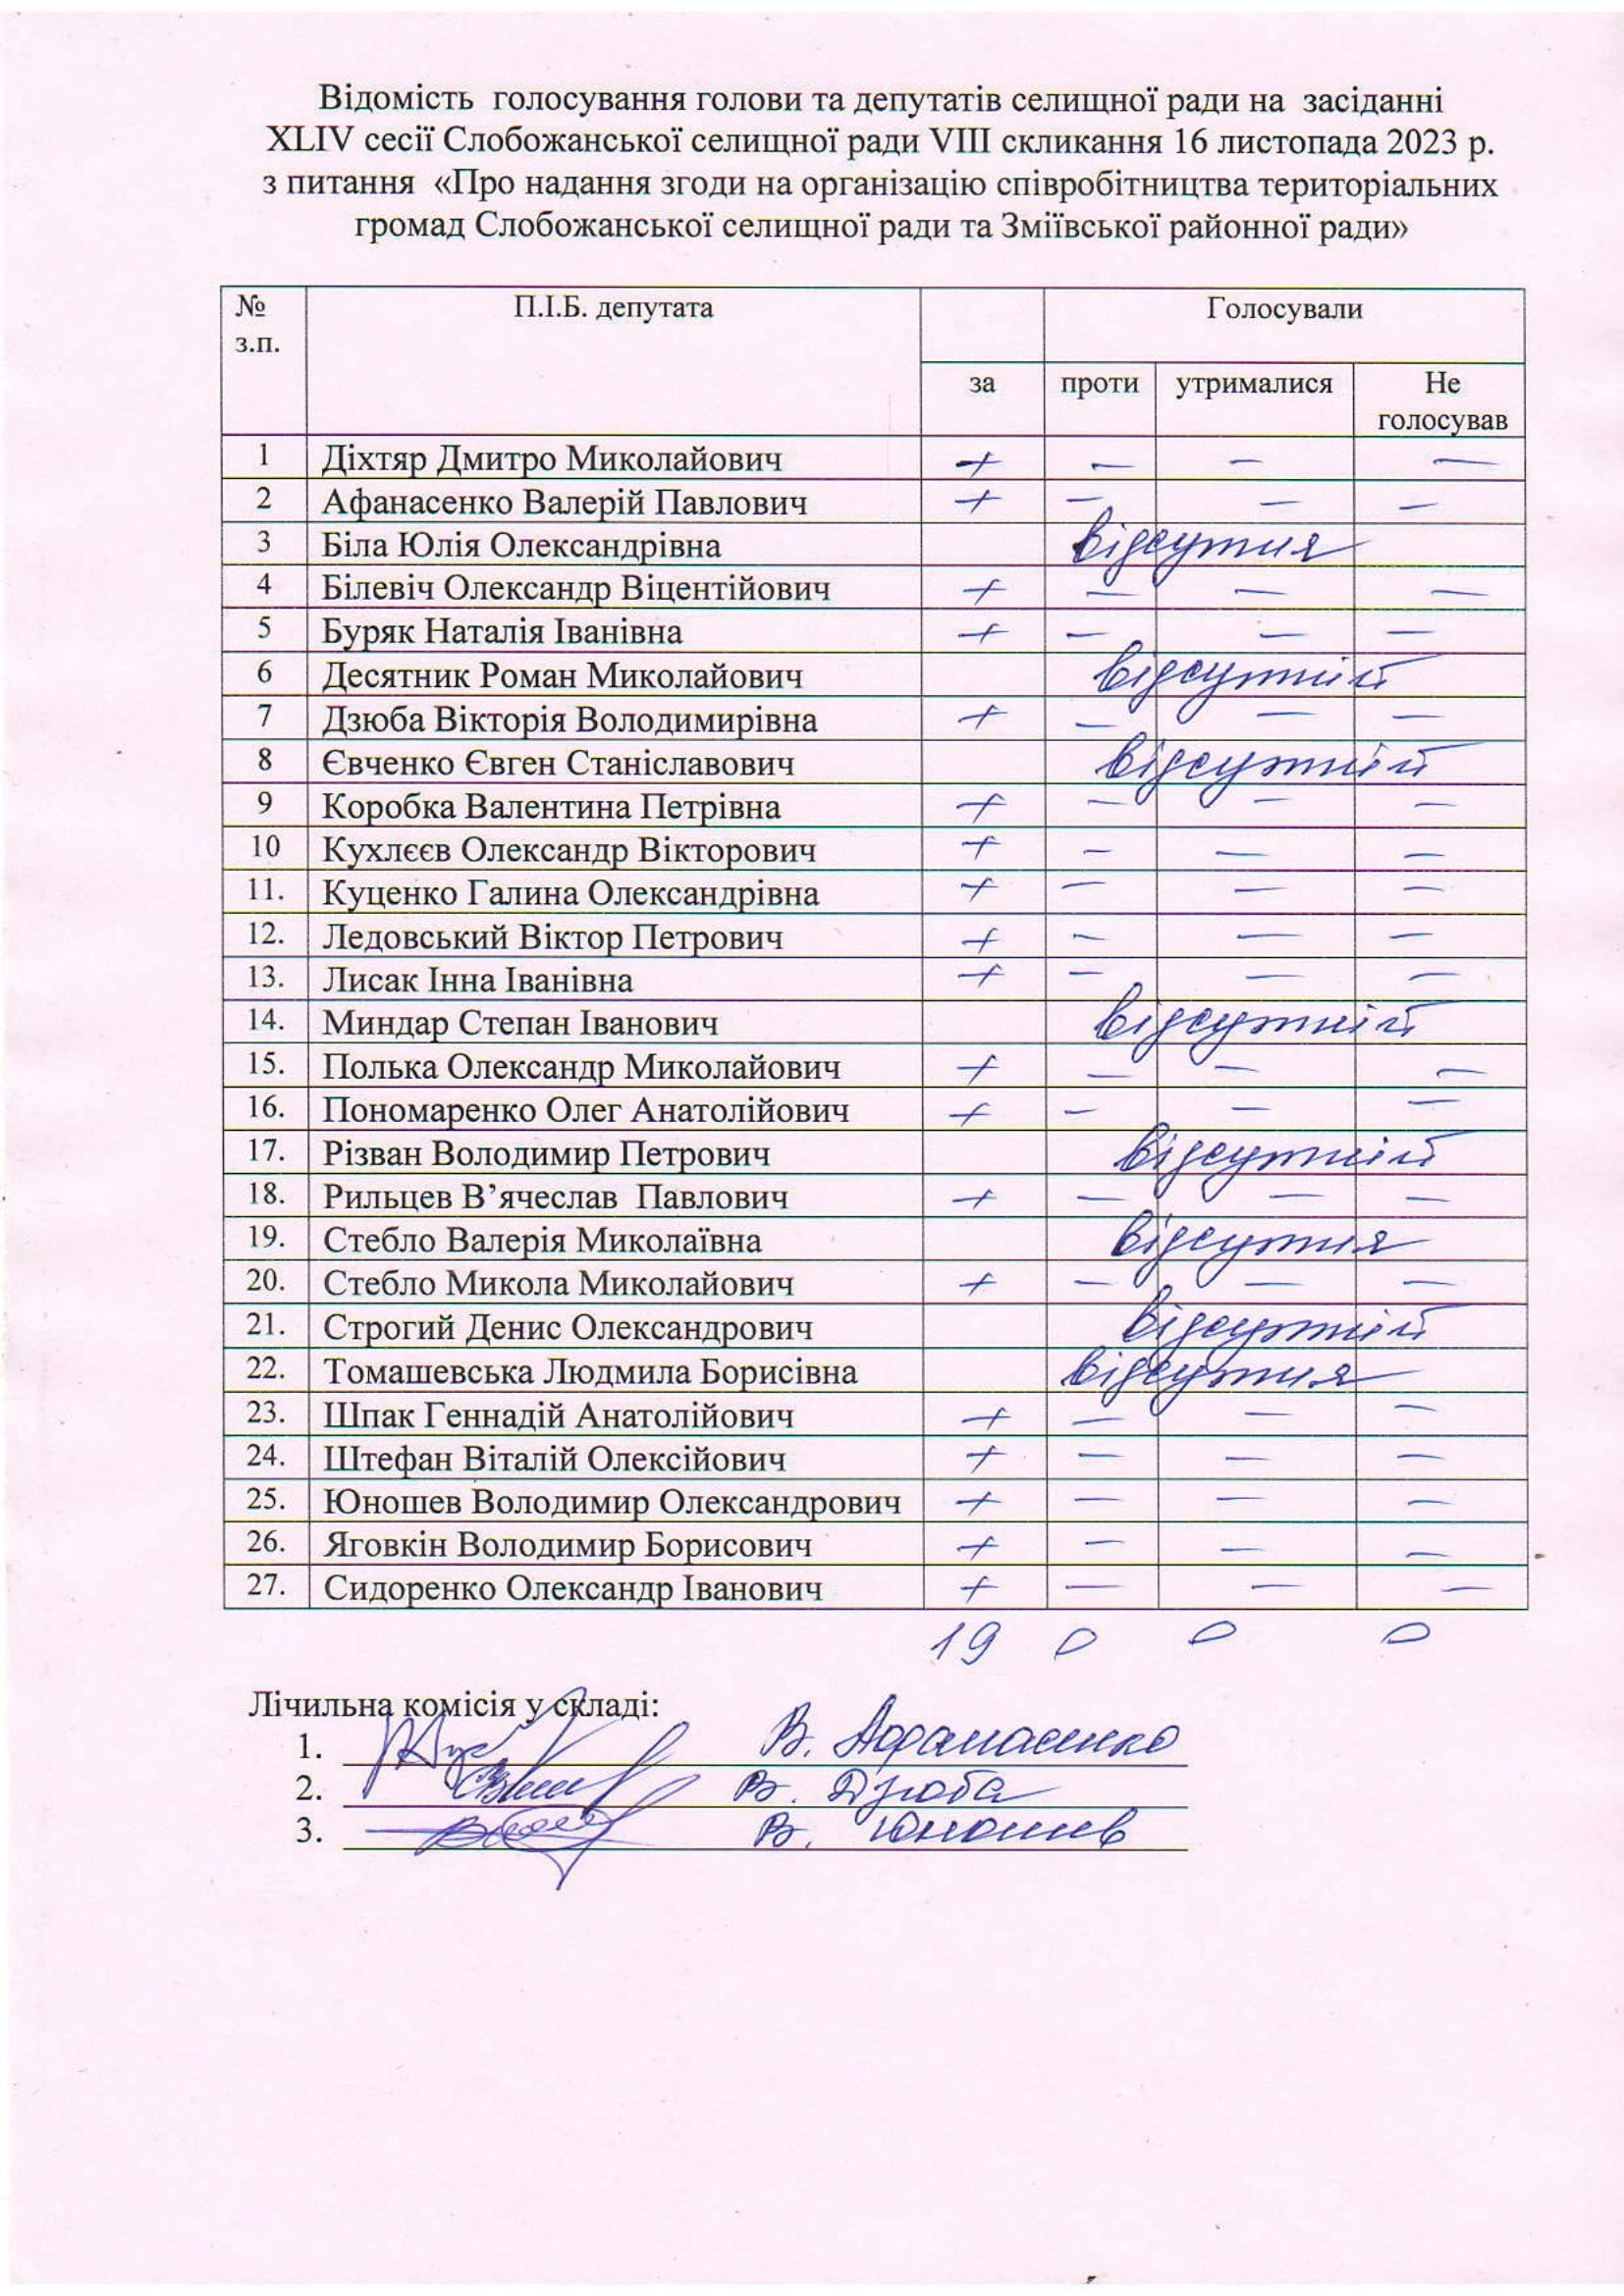 Відомість голосування голови та депутатів селищної ради на засіданні
XLIV сесії Слобожанської селищної ради VIII скликання 16 листопада 2023 р.
з питання «Про надання згоди на організацію співробітництва територіальних
громад Слобожанської селищної ради та Зміївської районної ради»
№ з.п. П.І.Б. депутата Голосували
за проти утрималися Не голосував
1 Діхтяр Дмитро Миколайович + — — —
2 Афанасенко Валерій Павлович + — — —
3 Біла Юлія Олександрівна відсутня
4 Білевіч Олександр Віцентійович + — — —
5 Буряк Наталія Іванівна + — — —
6 Десятник Роман Миколайович відсутній
7 Дзюба Вікторія Володимирівна + — — —
8 Євченко Євген Станіславович відсутній
9 Коробка Валентина Петрівна + — — —
10 Кухлєєв Олександр Вікторович + — — —
11. Куценко Галина Олександрівна + — — —
12. Ледовський Віктор Петрович + — — —
13. Лисак Інна Іванівна + — — —
14. Миндар Степан Іванович відсутній
15. Полька Олександр Миколайович + — — —
16. Пономаренко Олег Анатолійович + — — —
17. Різван Володимир Петрович відсутній
18. Рильцев В’ячеслав Павлович + — — —
19. Стебло Валерія Миколаївна відсутня
20. Стебло Микола Миколайович + — — —
21. Строгий Денис Олександрович відсутній
22. Томашевська Людмила Борисівна відсутня
23. Шпак Геннадій Анатолійович + — — —
24. Штефан Віталій Олексійович + — — —
25. Юношев Володимир Олександрович + — — —
26. Яговкін Володимир Борисович + — — —
27. Сидоренко Олександр Іванович + — — —
19 0 0 0
Лічильна комісія у складі:
1. В. Афанасенко
2. В. Дзюба
3. В. Юношев